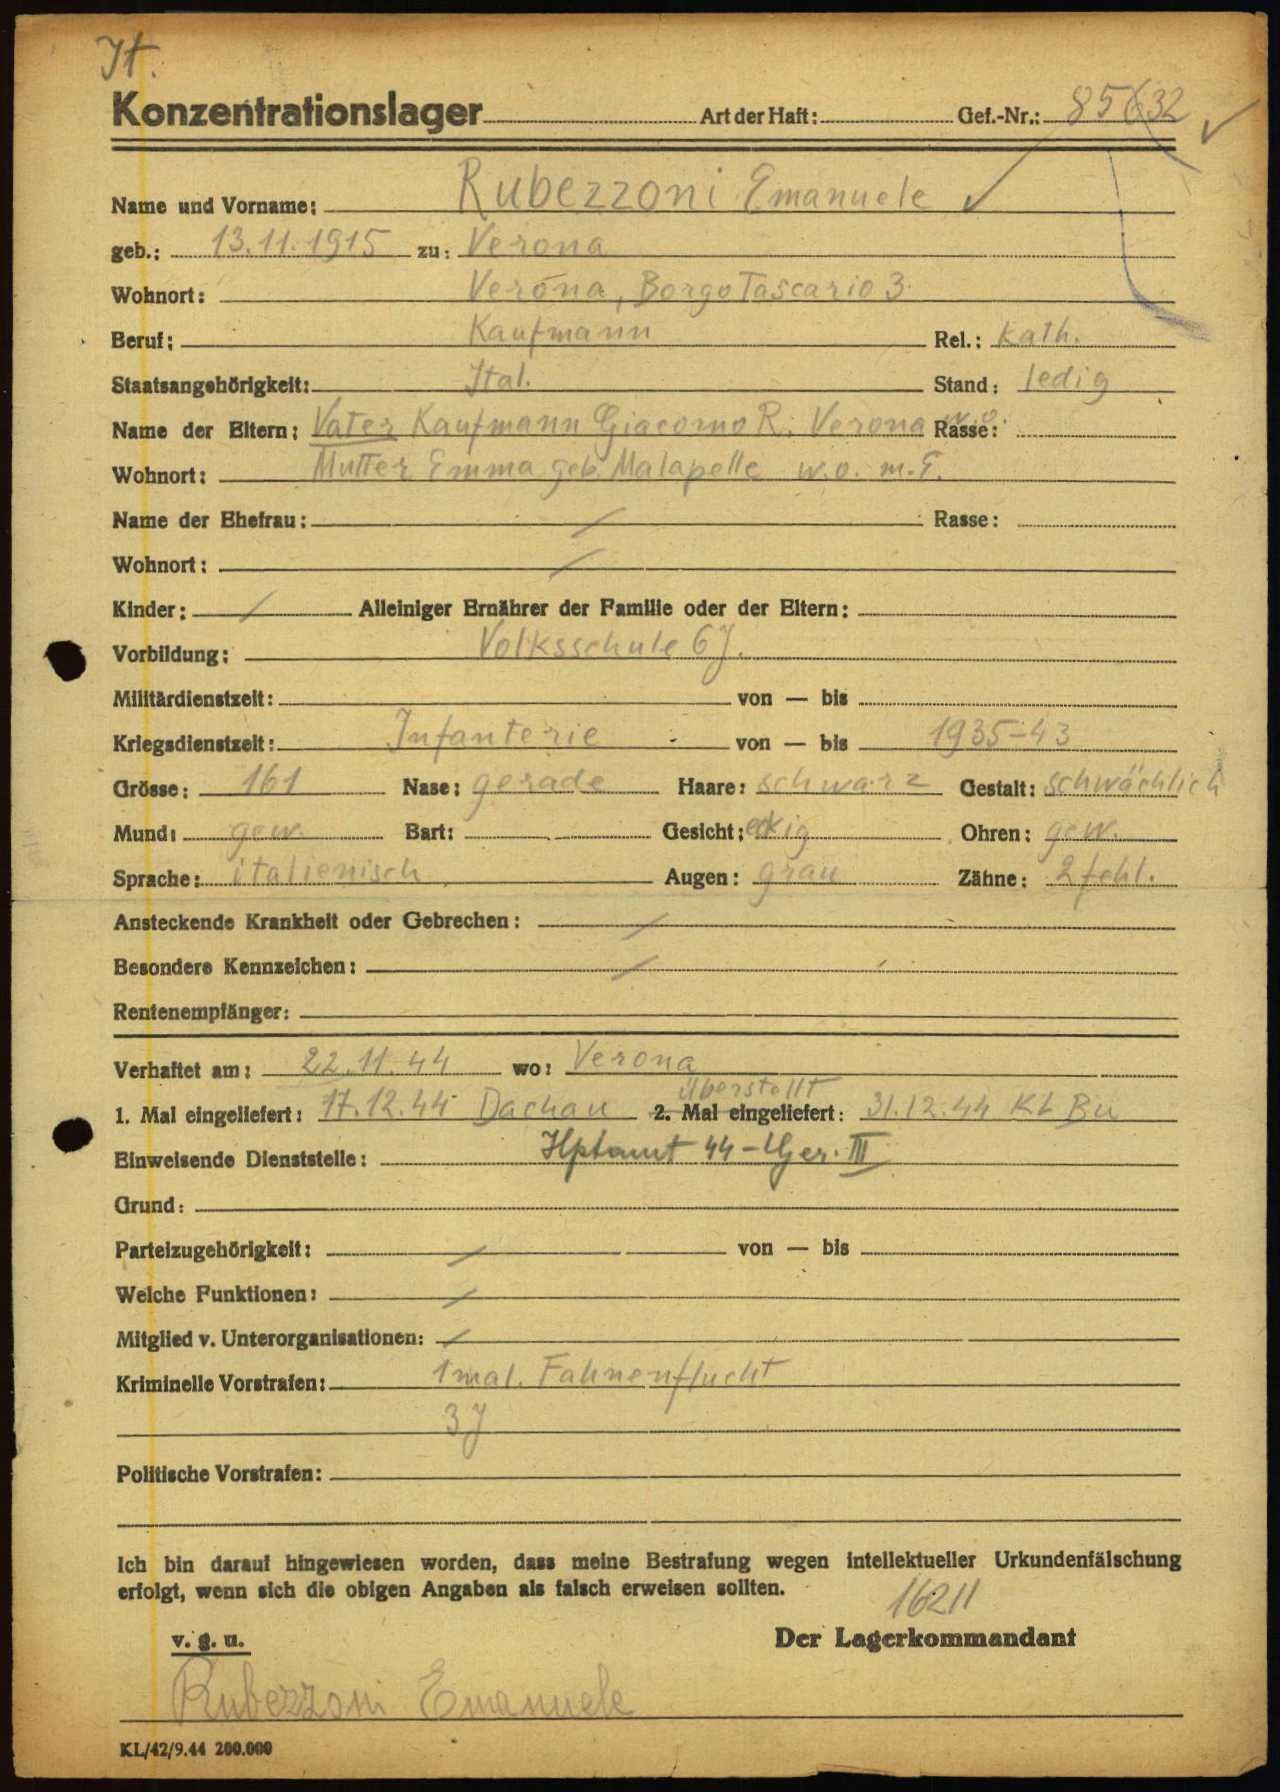 It.
Konzentrationslager Art der Haft: Gef.-Nr.: 85632
Name und Vorname: Rubezzoni Emanuele
geb.: 13.11.1915 zu: Verona
Wohnort: Verona, Borgo Tascario 3
Beruf: Kaufmann Rel.: kath.
Staatsangehörigkeit: Ital. Stand: ledig
Name der Eltern: Vater Kaufmann Giacomo R. Verona w.o. Rasse:
Wohnort: Mutter Emma geb. Malapelle w.o. m.E.
Name der Ehefrau: / Rasse:
Wohnort: /
Kinder: / Alleiniger Ernährer der Familie oder der Eltern:
Vorbildung: Volksschule 6 J.
Militärdienstzeit: von — bis
Kriegsdienstzeit: Infanterie von — bis 1935-43
Grösse: 161 Nase: gerade Haare: schwarz Gestalt: schwächlich
Mund: gew. Bart: Gesicht: eckig Ohren: gew.
Sprache: italienisch Augen: grau Zähne: 2 fehl.
Ansteckende Krankheit oder Gebrechen: /
Besondere Kennzeichen: /
Rentenempfänger:
Verhaftet am: 22.11.44 wo: Verona
überstellt
1. Mal eingeliefert: 17.12.44 Dachau 2. Mal eingeliefert: 31.12.44 KL Bu
Einweisende Dienststelle: Hptamt 44 - III
Grund:
Parteizugehörigkeit: / von — bis
Welche Funktionen: /
Mitglied v. Unterorganisationen: /
Kriminelle Vorstrafen: 1 mal. Fahnenflucht
3 J
Politische Vorstrafen:
Ich bin darauf hingewiesen worden, dass meine Bestrafung wegen intellektueller Urkundenfälschung
erfolgt, wenn sich die obigen Angaben als falsch erweisen sollten.
16211
v. g. u. Der Lagerkommandant
Rubezzoni Emanuele
KL/42/9.44 200.000